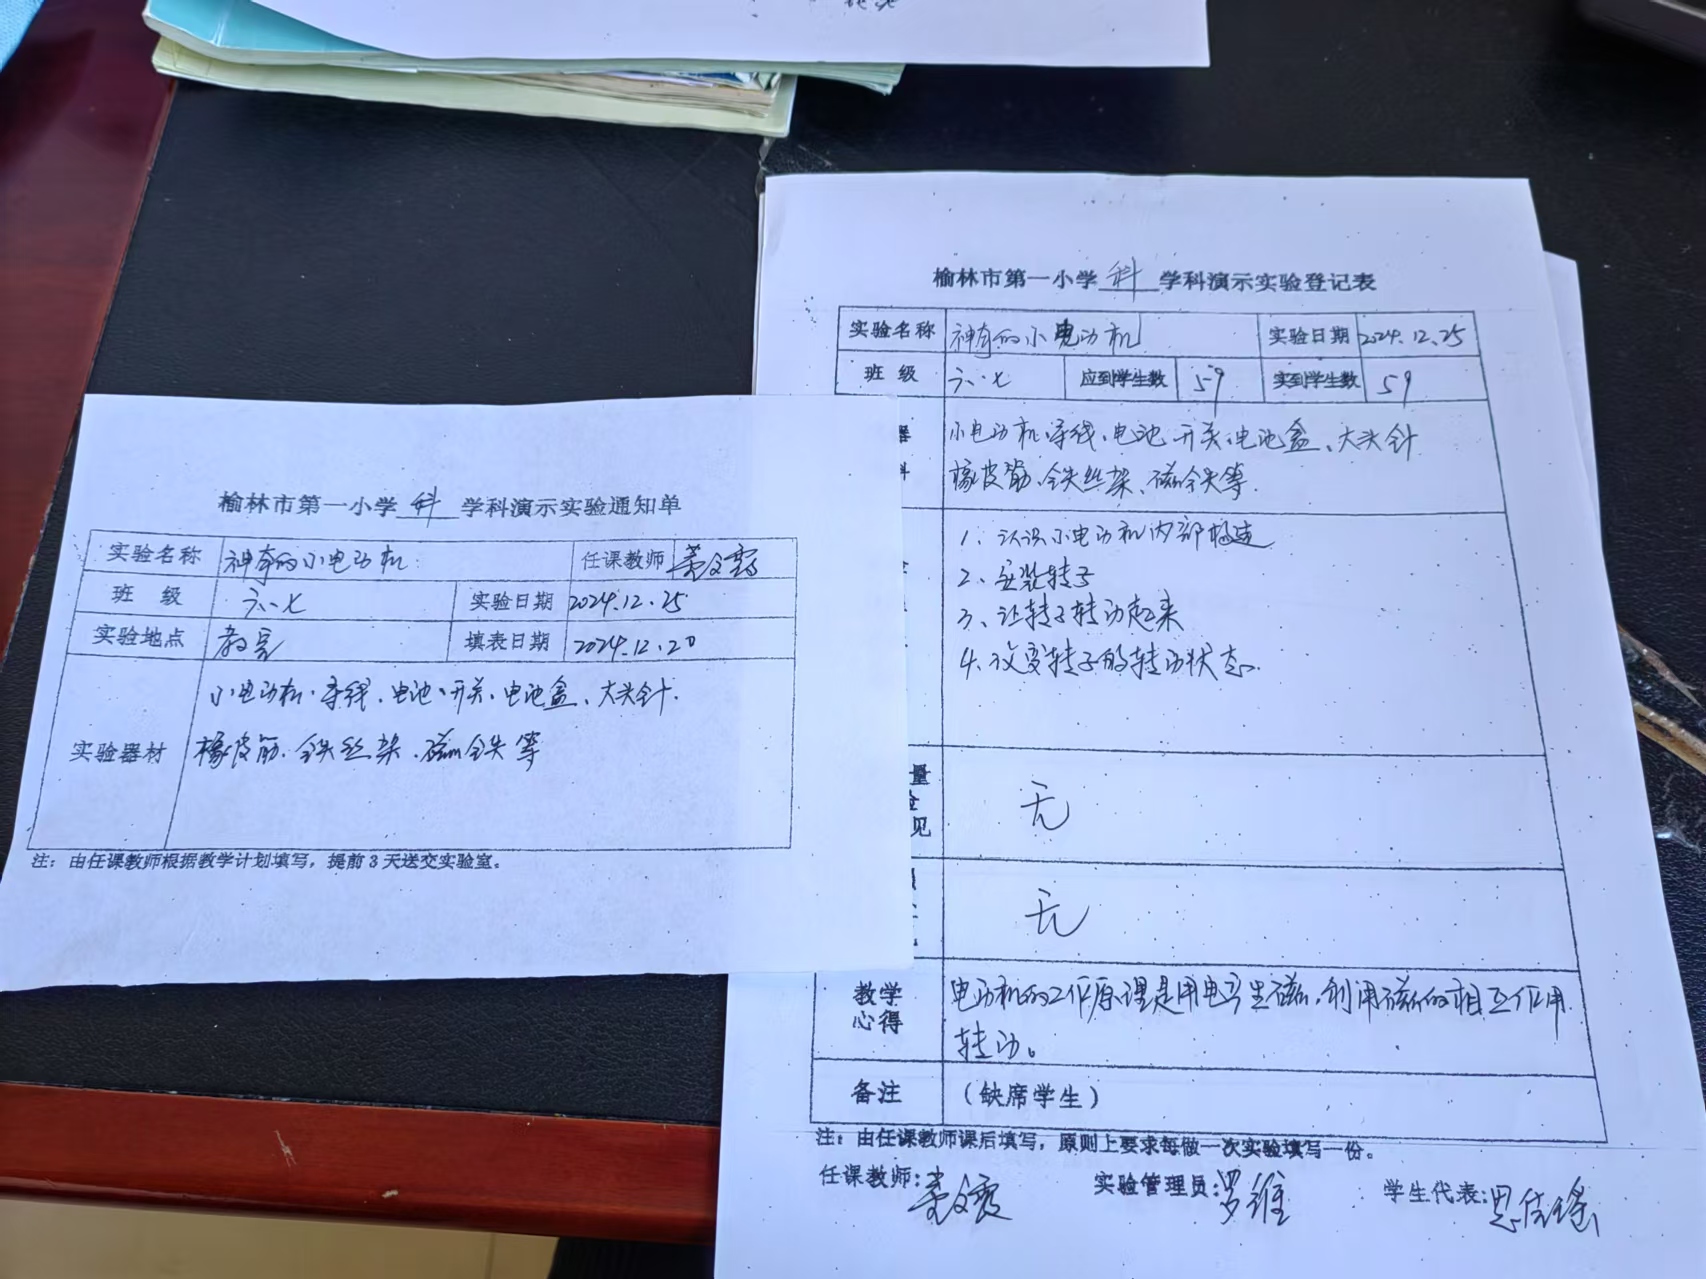 榆林市第一小学 科 学科演示实验通知单
实验名称 神奇的小电动机 任课教师
班 级 六.七 实验日期 2024.12.25
实验地点 教室 填表日期 2024.12.20
小电动机、导线、电池、开关、电池盒、大头针.
实验器材 橡皮筋、铁丝架、磁铁等
注：由任课教师根据教学计划填写，提前3天送交实验室。
榆林市第一小学 科 学科演示实验登记表
实验名称 神奇的小电动机 实验日期 2024.12.25
班 级 六.七 应到学生数 59 实到学生数 59
器 小电动机、导线、电池、开关、电池盒、大头针
橡皮筋、铁丝架、磁铁等.
1、认识小电动机内部构造
2、安装转子
3、让转子转动起来
4、改变转子的转动状态.
量
见
无
无
教学 电动机的工作原理是用电产生磁，利用磁的相互作用
心得 转动。
备注 （缺席学生）
注：由任课教师课后填写，原则上要求每做一次实验填写一份。
任课教师: 实验管理员:罗维 学生代表: